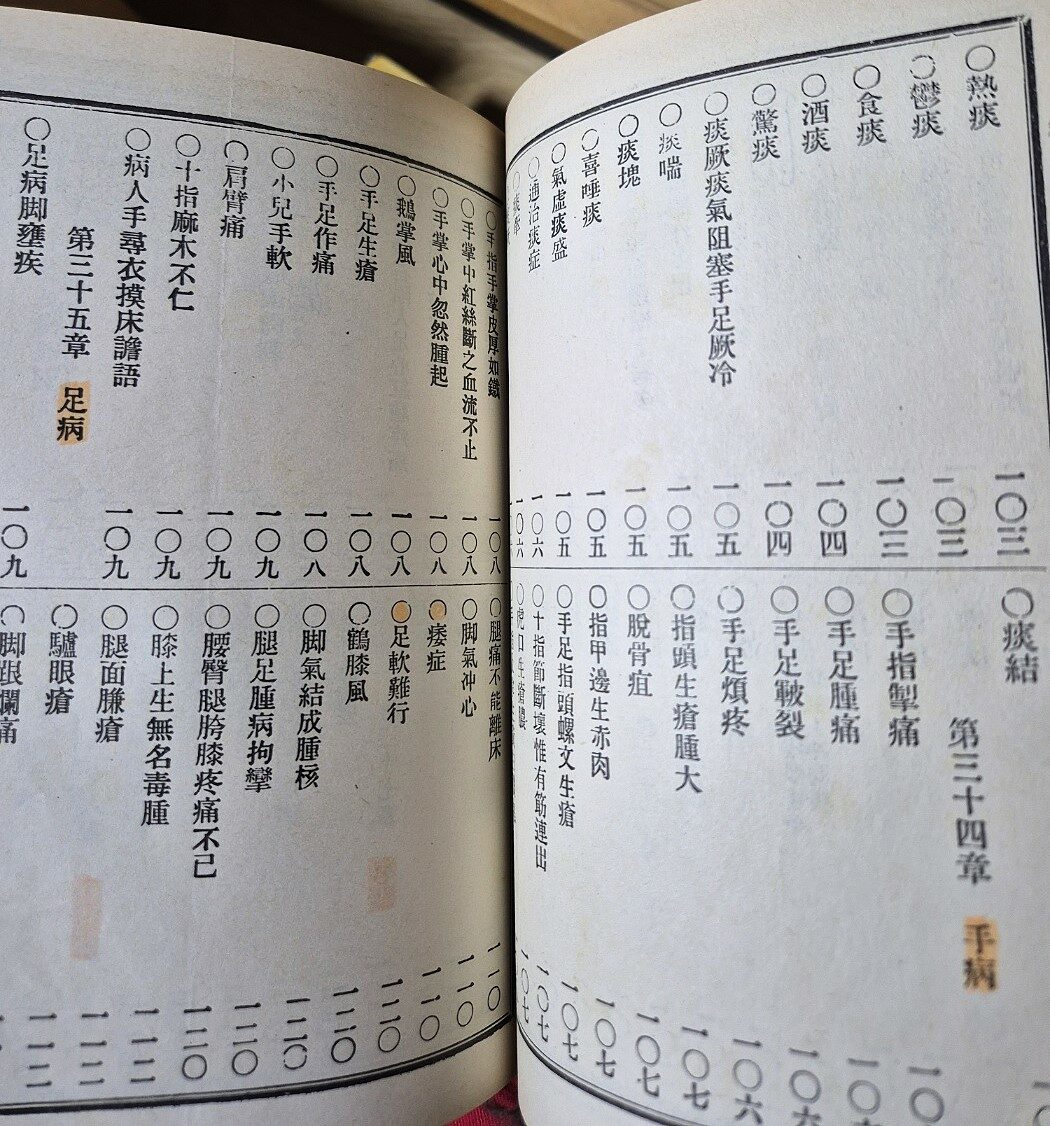 〇熱痰 一〇三
〇鬱痰 一〇三
〇食痰 一〇三
〇酒痰 一〇四
〇驚痰 一〇四
〇痰厥痰氣阻塞手足厥冷 一〇五
〇痰喘 一〇五
〇痰塊 一〇五
〇喜唾痰 一〇五
〇氣虛痰盛 一〇五
〇通治痰症 一〇六
一〇六
〇痰結
第三十四章 手病
〇手指掣痛 一〇
〇手足腫痛 一〇
〇手足皸裂 一〇六
〇手足煩疼 一〇六
〇指頭生瘡腫大 一〇七
〇脫骨疽 一〇七
〇指甲邊生赤肉 一〇七
〇手足指頭螺文生瘡 一〇七
〇十指節斷壞惟有筋連出 一〇七
〇虎口生瘡 一〇七
〇手指手掌皮厚如鐵 一〇八
〇手掌中紅絲斷之血流不止 一〇八
〇手掌心中忽然腫起 一〇八
〇鵝掌風 一〇八
〇手足生瘡 一〇八
〇手足作痛 一〇八
〇小兒手軟 一〇九
〇肩臂痛 一〇九
〇十指麻木不仁 一〇九
〇病人手尋衣摸床譫語 一〇九
第三十五章 足病
〇足病脚壅疾 一〇九
〇腿痛不能離床 一一〇
〇脚氣沖心 一一〇
〇痿症 一一〇
〇足軟難行 一一〇
〇鶴膝風 一一〇
〇脚氣結成腫核 一一〇
〇腿足腫病拘攣 一一〇
〇腰臀腿胯膝疼痛不已 一一〇
〇膝上生無名毒腫 一一一
〇腿面臁瘡 一一一
〇驢眼瘡 一一一
〇脚跟爛痛